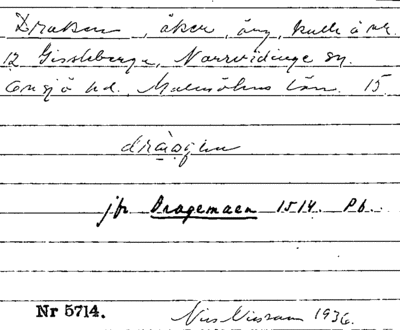 Draken, åker, äng, kulle å nr.
12 Gissleberga, Norrvidinge sn.
Onsjö hd. Malmöhus län. 15
dràagen
jfr Dragemaen 1514. Pb.
Nr 5714. Nils 1936.